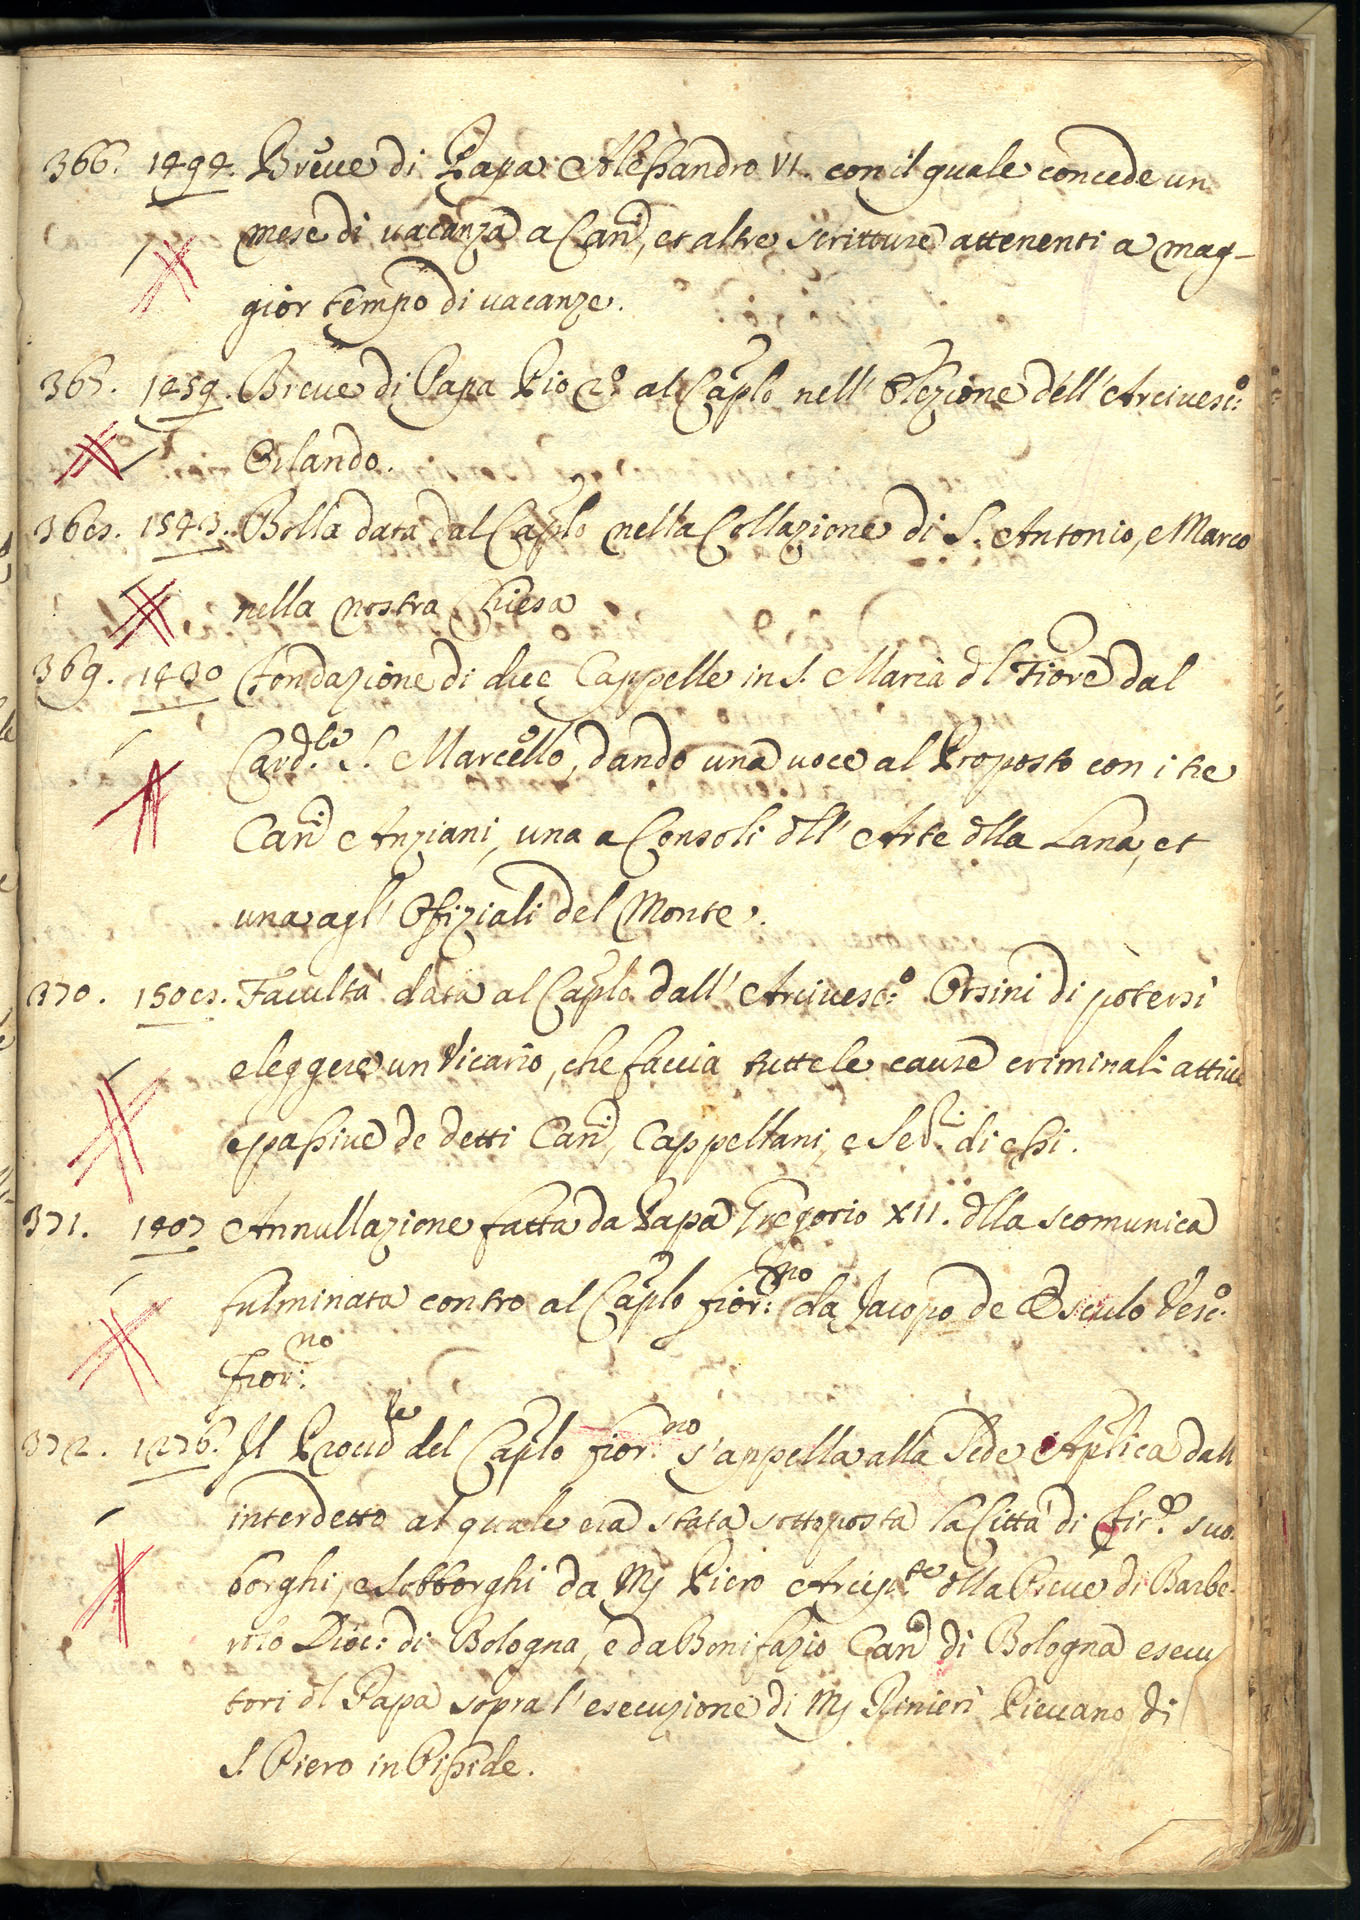 366. 1494. Breve di Papa Alessandro VI. con il quale concede un
mese di vacanza a Can.ci, et altre scritture attenenti a mag-
gior tempo di vacanze.
367. 1459. Breve di Papa Pio 2.o al Caplo nell' Elezione dell' Arcivesc:o
Orlando.
368. 1543. Bolla data dal Caplo nella Collazione di S. Antonio, e Marco
nella nostra Chiesa
369. 1430 Fondazione di due Cappelle in S. Maria dl Fiore dal
Card.le S. Marcello, dando una voce al Proposto con i tre
Can.ci Anziani, una a Consoli dll' Arte dlla Lana, et
una agl' Ofiziali del Monte.
370. 1508. Facultà data al Caplo dall' Arcivesc:o Orsini di potersi
eleggere un Vicario, che faccia tutte le cause criminali attive
e passive de detti Can.ci, Cappellani, e Ser.i di essi.
371. 1407 Annullazione fatta da Papa Gregorio XII. dlla scomunica
fulminata contro al Caplo fior:no da Jacopo de Esculo Vesc:o
fior:no
372. 1276. Il Procud.le del Caplo fior:no s'appella alla Sede Aplica dall
interdetto al quale era stata sottoposta la Città di Fir.e suo.
borghi, e sobborghi da Mj Piero Arcip.te dlla Pieve di Barbe-
rolo Dioc: di Bologna, e da Bonifazio Can.co di Bologna esecu
tori dl Papa sopra l' esecuzione di Mj Rinieri Pievano di
S. Piero in Piside.